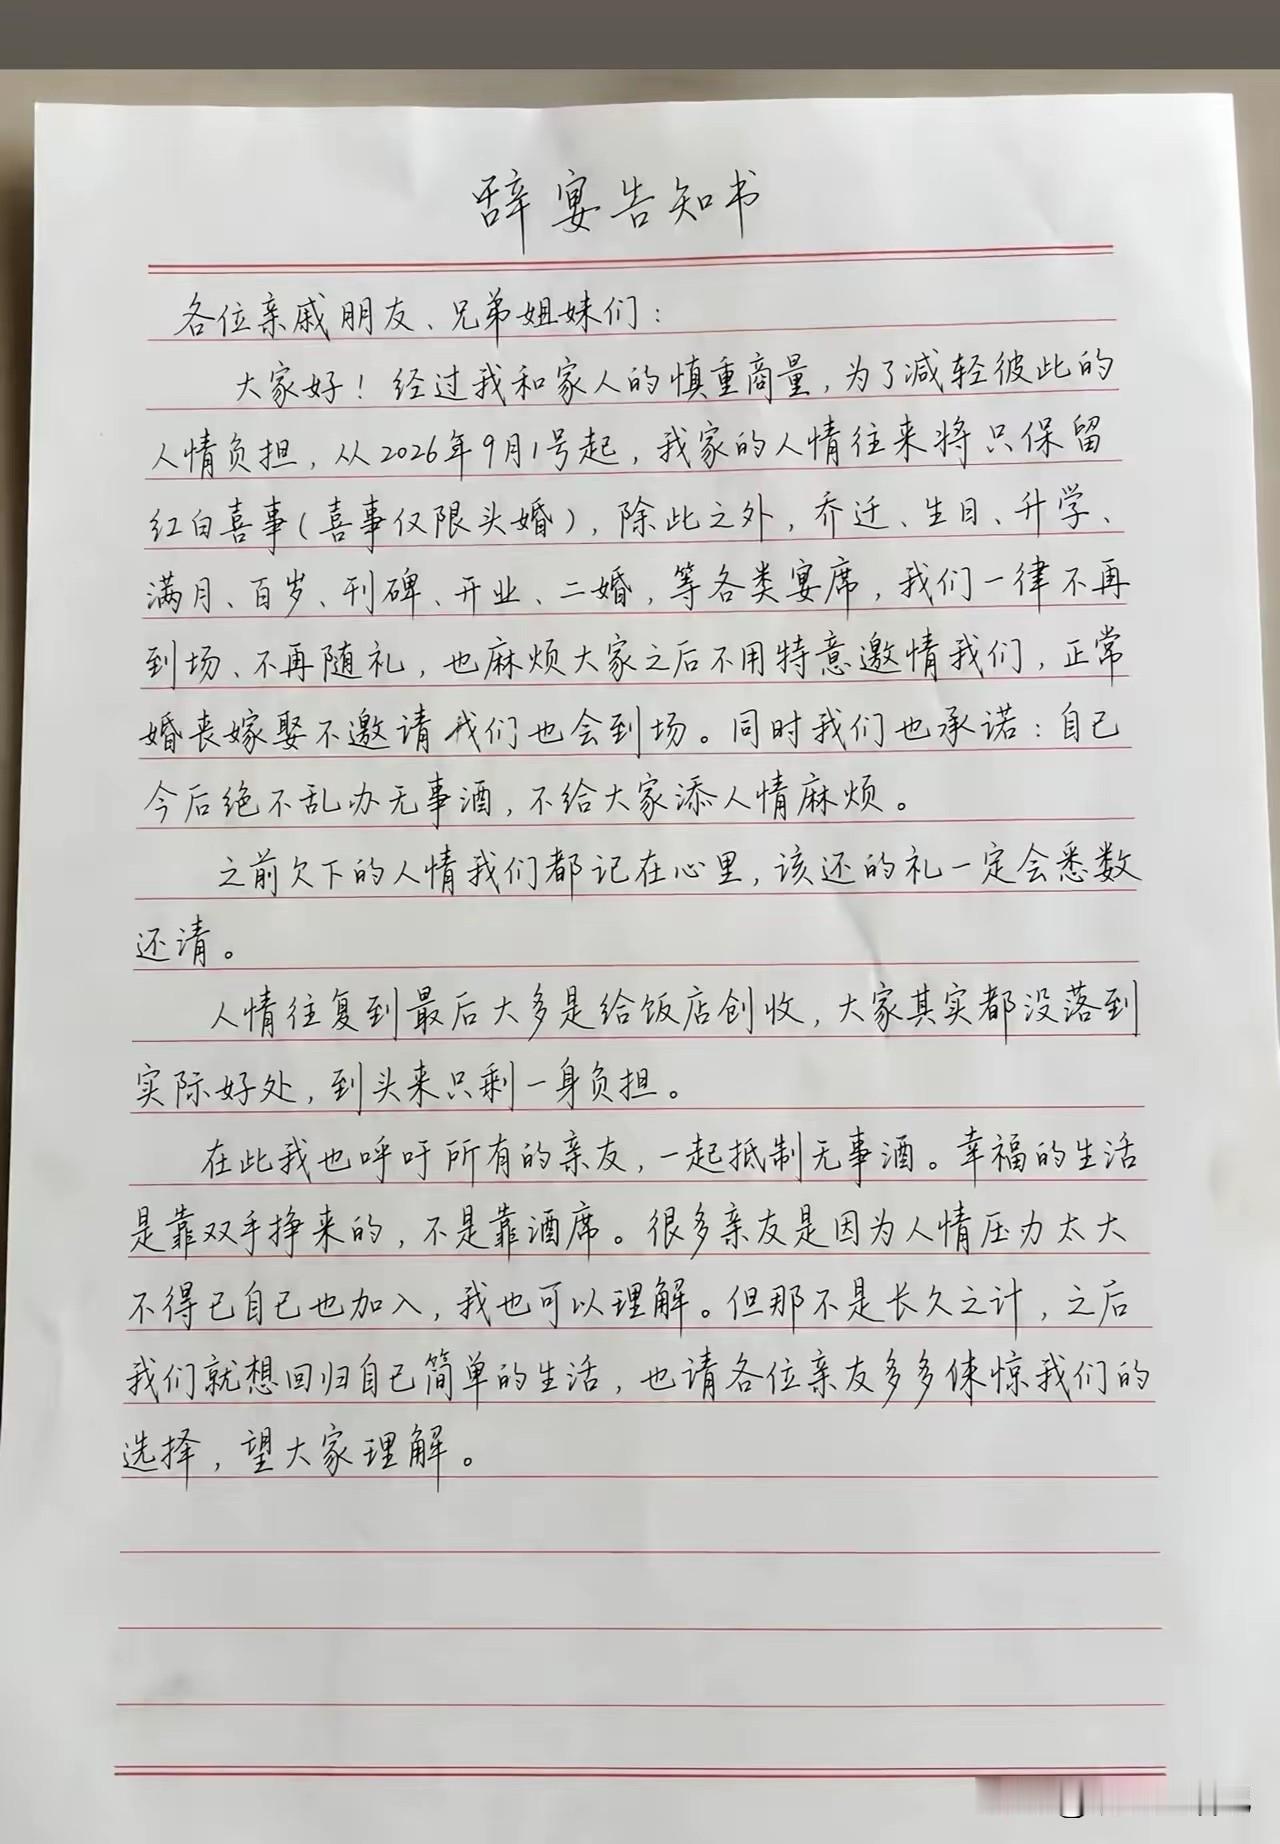 辞宴告知书
各位亲戚朋友、兄弟姐妹们：
大家好！经过我和家人的慎重商量，为了减轻彼此的
人情负担，从2026年9月1号起，我家的人情往来将只保留
红白喜事(喜事仅限头婚)，除此之外，乔迁、生日、升学、
满月、百岁、刊碑、开业、二婚，等各类宴席，我们一律不再
到场、不再随礼，也麻烦大家之后不用特意邀情我们，正常
婚丧嫁娶不邀请我们也会到场。同时我们也承诺：自己
今后绝不乱办无事酒，不给大家添人情麻烦。
之前欠下的人情我们都记在心里，该还的礼一定会悉数
还清。
人情往复到最后大多是给饭店创收，大家其实都没落到
实际好处，到头来只剩一身负担。
在此我也呼吁所有的亲友，一起抵制无事酒。幸福的生活
是靠双手挣来的，不是靠酒席。很多亲友是因为人情压力太大
不得已自己也加入，我也可以理解。但那不是长久之计，之后
我们就想回归自己简单的生活，也请各位亲友多多倈惊我们的
选择，望大家理解。